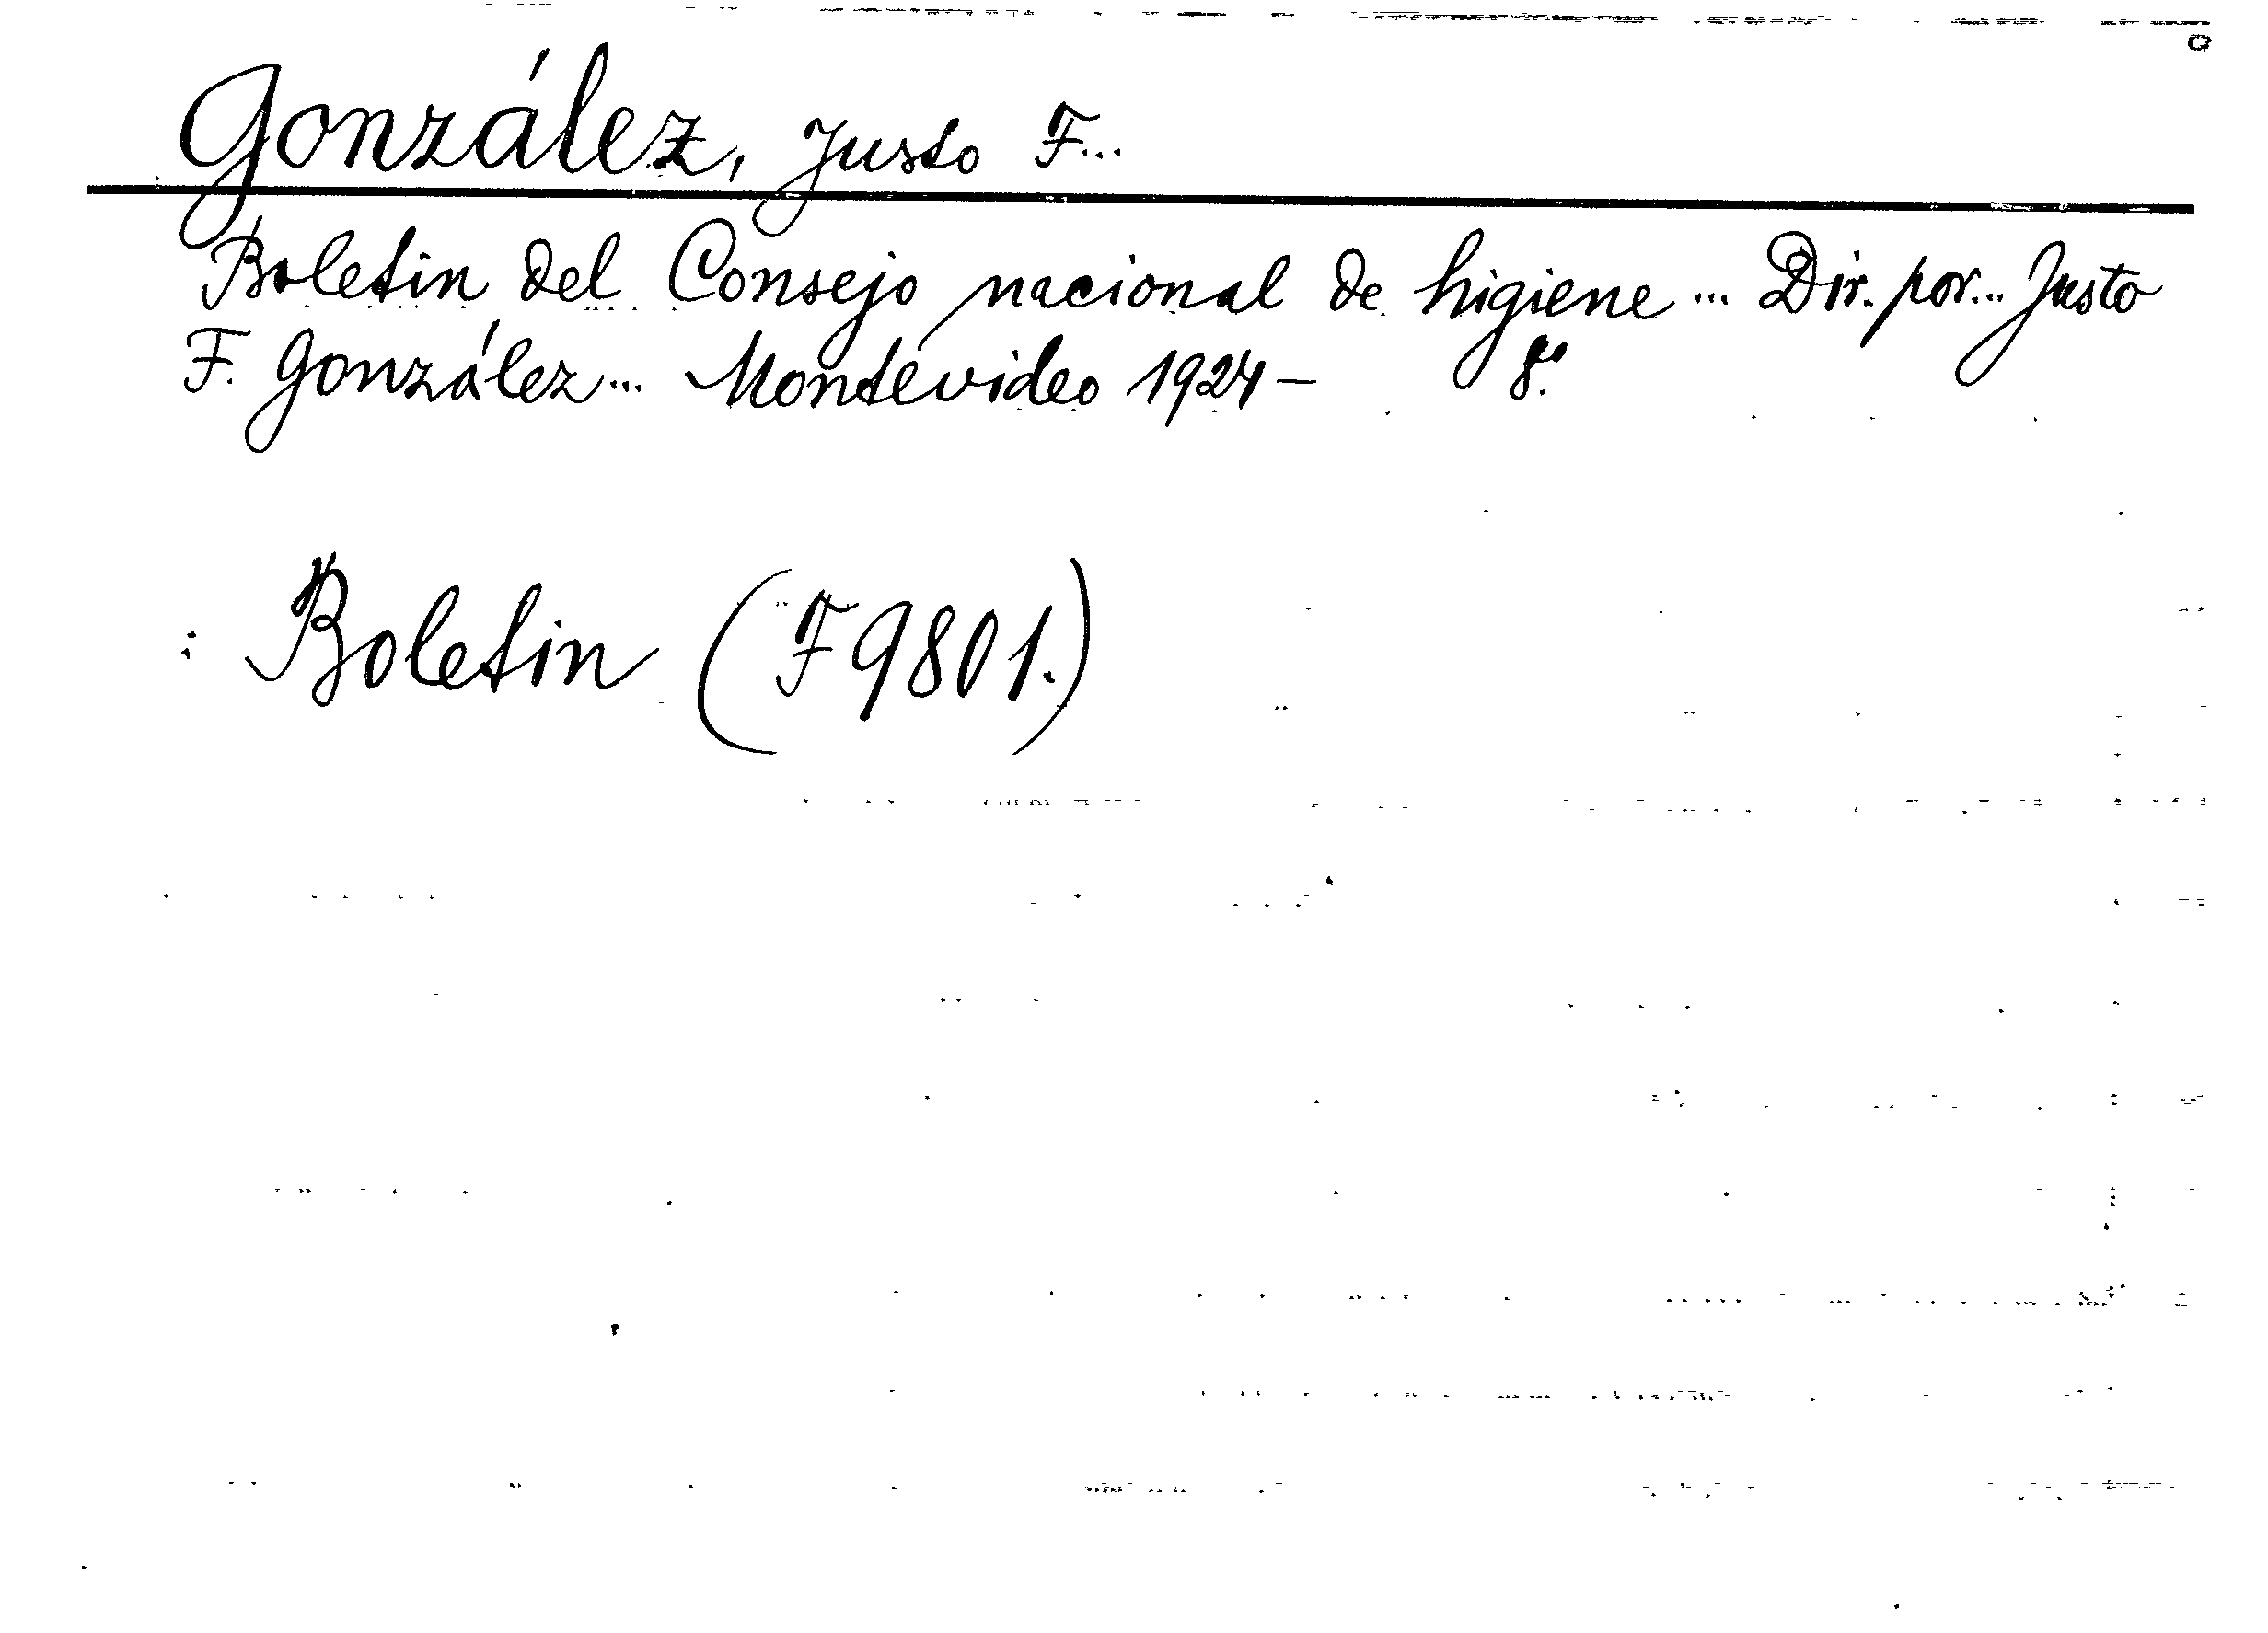 González, Justo F...
Boletin del Consejo nacional de higiene ... Dir. por... Justo
F. González... Montevideo 1924 - 8º.
: Boletin (F 9801.)